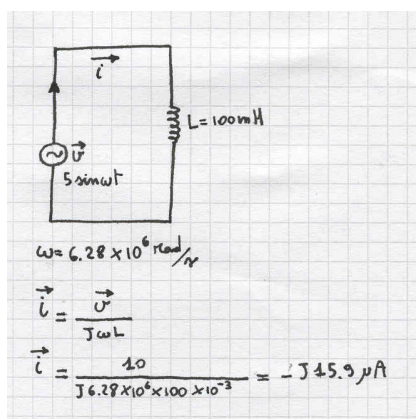 i
L=100mH
v
5 sinωt
ω=6.28×10⁶ rad/s
i = v / JωL
i = 10 / J6.28×10⁶×100×10⁻³ = -J15.9 μA